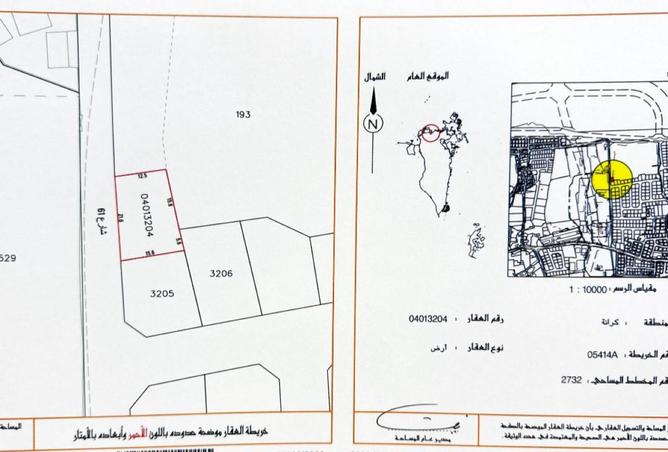 193
529
12.5
04013204
21.0
15.0
5.5
15.0
شارع 61
3205
3206
خريطة العقار موضحة حدوده باللون الأحمر وأبعاده بالأمتار
المساحة
الموقع العام
الشمال
N
مقياس الرسم : 10000 : 1
رقم العقار : 04013204
المنطقة : كرانة
نوع العقار : أرض
رقم الخريطة : 05414A
رقم المخطط المساحي : 2732
مدير عام المساحة
المساحة والتسجيل العقاري بأن خريطة العقار الموضحة بالصفحة
محددة باللون الأحمر هي الصحيحة والمعتمدة في هذه الوثيقة.